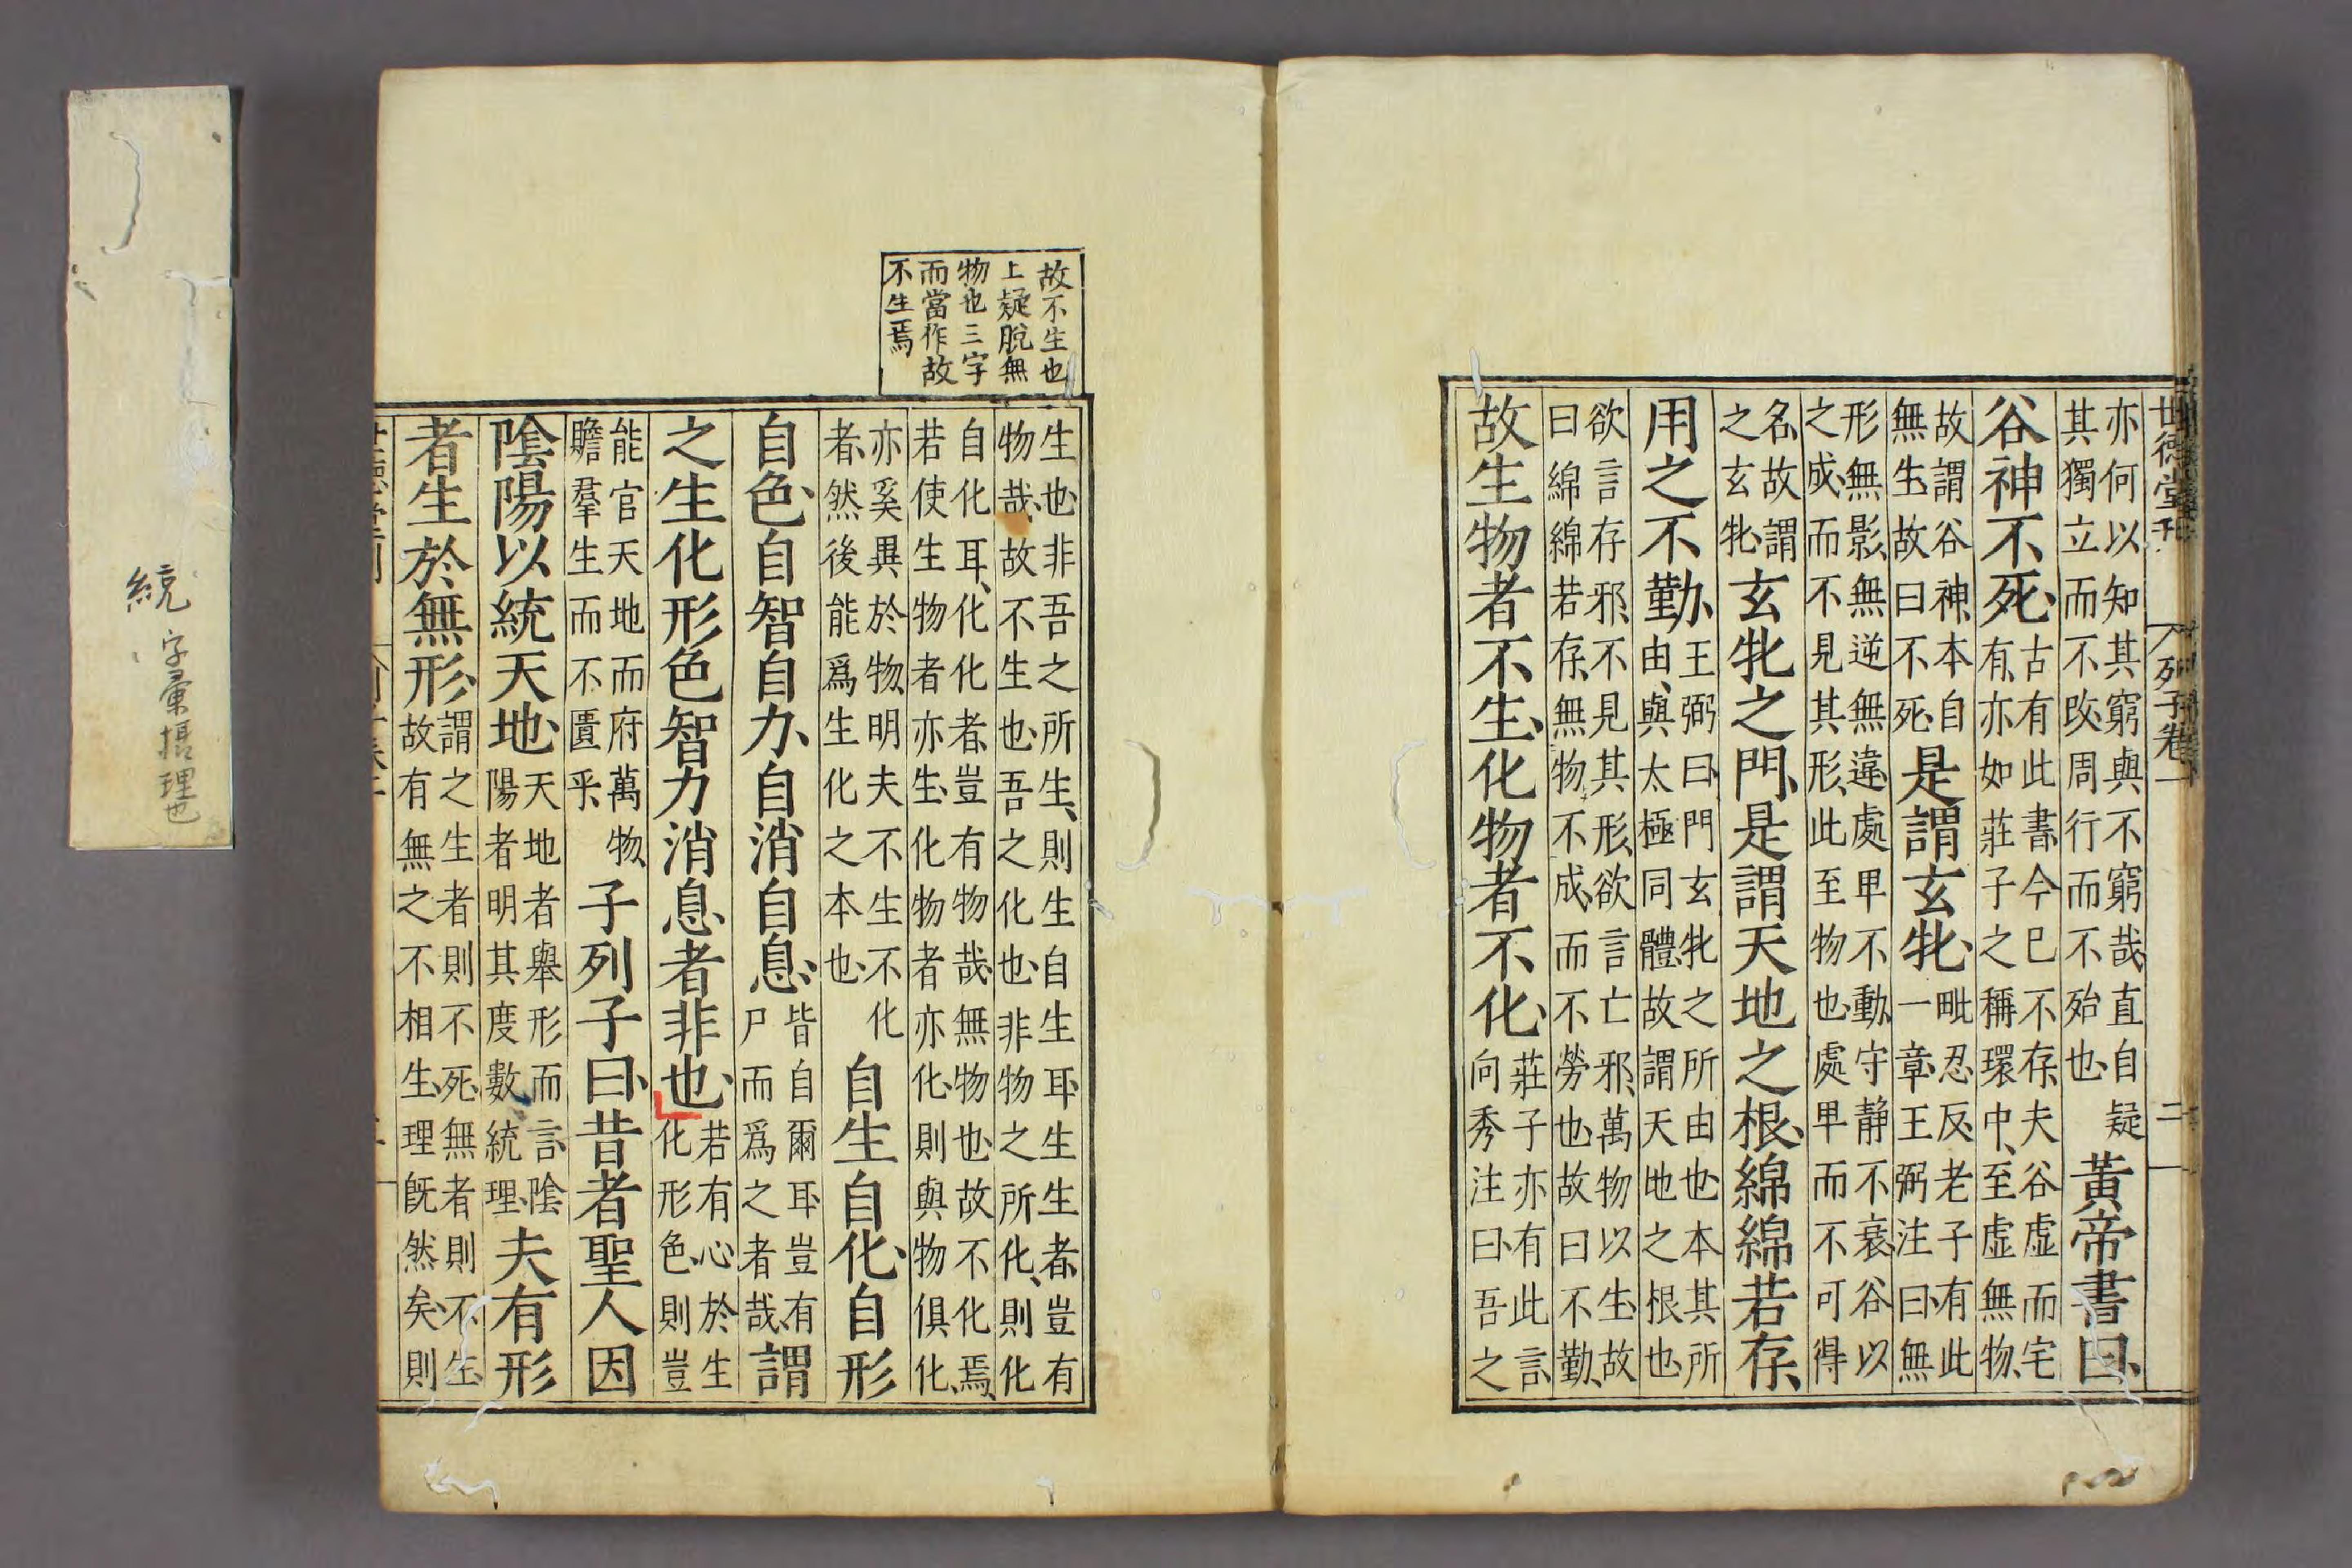 世德堂刊 列子卷一 二
亦何以知其窮與不窮哉直自疑
其獨立而不改周行而不殆也
黃帝書曰、
谷神不死、
古有此書今已不存夫谷虛而宅
有、亦如莊子之稱環中、至虛無物、
故謂谷神、本自
無生、故曰不死、
是謂玄牝、
毗忍反、老子有此
一章、王弼注曰、無
形無影、無逆無違、處卑不動、守静不衰、谷以
之成、而不見其形、此至物也、處卑而不可得
名、故謂
之玄牝、
玄牝之門、是謂天地之根、綿綿若存、
用之不勤、
王弼曰、門玄牝之所由也、本其所
由、與太極同體、故謂天地之根也、
欲言存邪、不見其形、欲言亡邪、萬物以生、故
曰綿綿若存、無物不成、而不勞也、故曰不勤、
故生物者不生、化物者不化、
莊子亦有此言
向秀注曰、吾之
故不生也
上疑脫無
物也三字
而當作故
不生焉
生也、非吾之所生、則生自生耳、生生者、豈有
物哉、故不生也、吾之化也、非物之所化、則化
自化耳、化化者、豈有物哉、無物也、故不化焉、
若使生物者亦生、化物者亦化、則與物俱化、
亦奚異於物、明夫不生不化
者、然後能爲生化之本也、
自生自化、自形
自色、自智自力、自消自息、
皆自爾耳、豈有
尸而爲之者哉、
謂
之生化形色智力消息者非也、
若有心於生
化形色、則豈
能官天地而府萬物、
贍羣生而不匱乎、
子列子曰、昔者聖人因
陰陽以統天地、
天地者舉形而言、陰
陽者明其度數統理、
夫有形
者生於無形、
謂之生者則不死、無者則不生、
故有無之不相生、理旣然矣、則
統 字彙揺理也